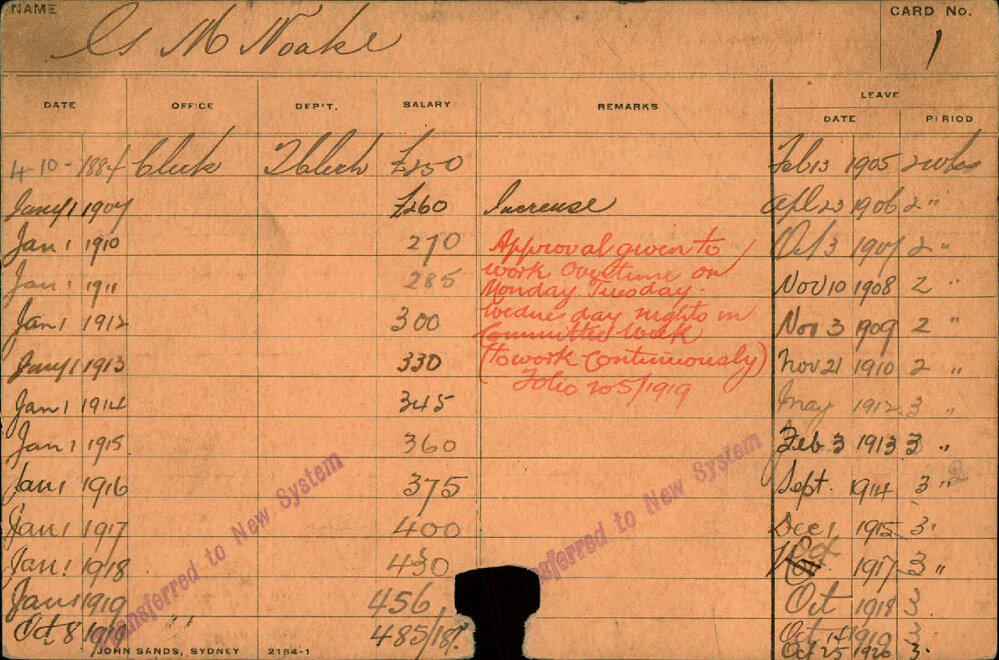 NAME
G M Noake
CARD No.
1
DATE OFFICE DEP'T. SALARY REMARKS LEAVE
DATE PERIOD
4-10-1884 Clerk £250 Feb 13 1905 2 wks
Jany 1 1907 £260 Increase Apl 23 1906 2 "
Jan 1 1910 270 Approval given to Oct 3 1907 2 "
work overtime on
Jan 1 1911 285 Monday. Tuesday. Nov 10 1908 2 "
Jan 1 1912 300 Wednesday nights in Nov 3 1909 2 "
Committee Week
Jany 1 1913 330 (to work continuously) Nov 21 1910 2 "
Folio 205/1919
Jan 1 1914 345 May 1912 3 "
Jan 1 1915 360 Feb 3 1913 3 "
Jan 1 1916 375 Sept. 1914 3 "
Jan 1 1917 400 Dec 1 1915 3 "
Jan 1 1918 430 Oct 1917 3 "
Jan 1 1919 456 Oct 1918 3
Oct 8 1919 " 485/18/. Oct 1919 3
Oct 25 1920 3
Transferred to New System
Transferred to New System
JOHN SANDS, SYDNEY 2154-1